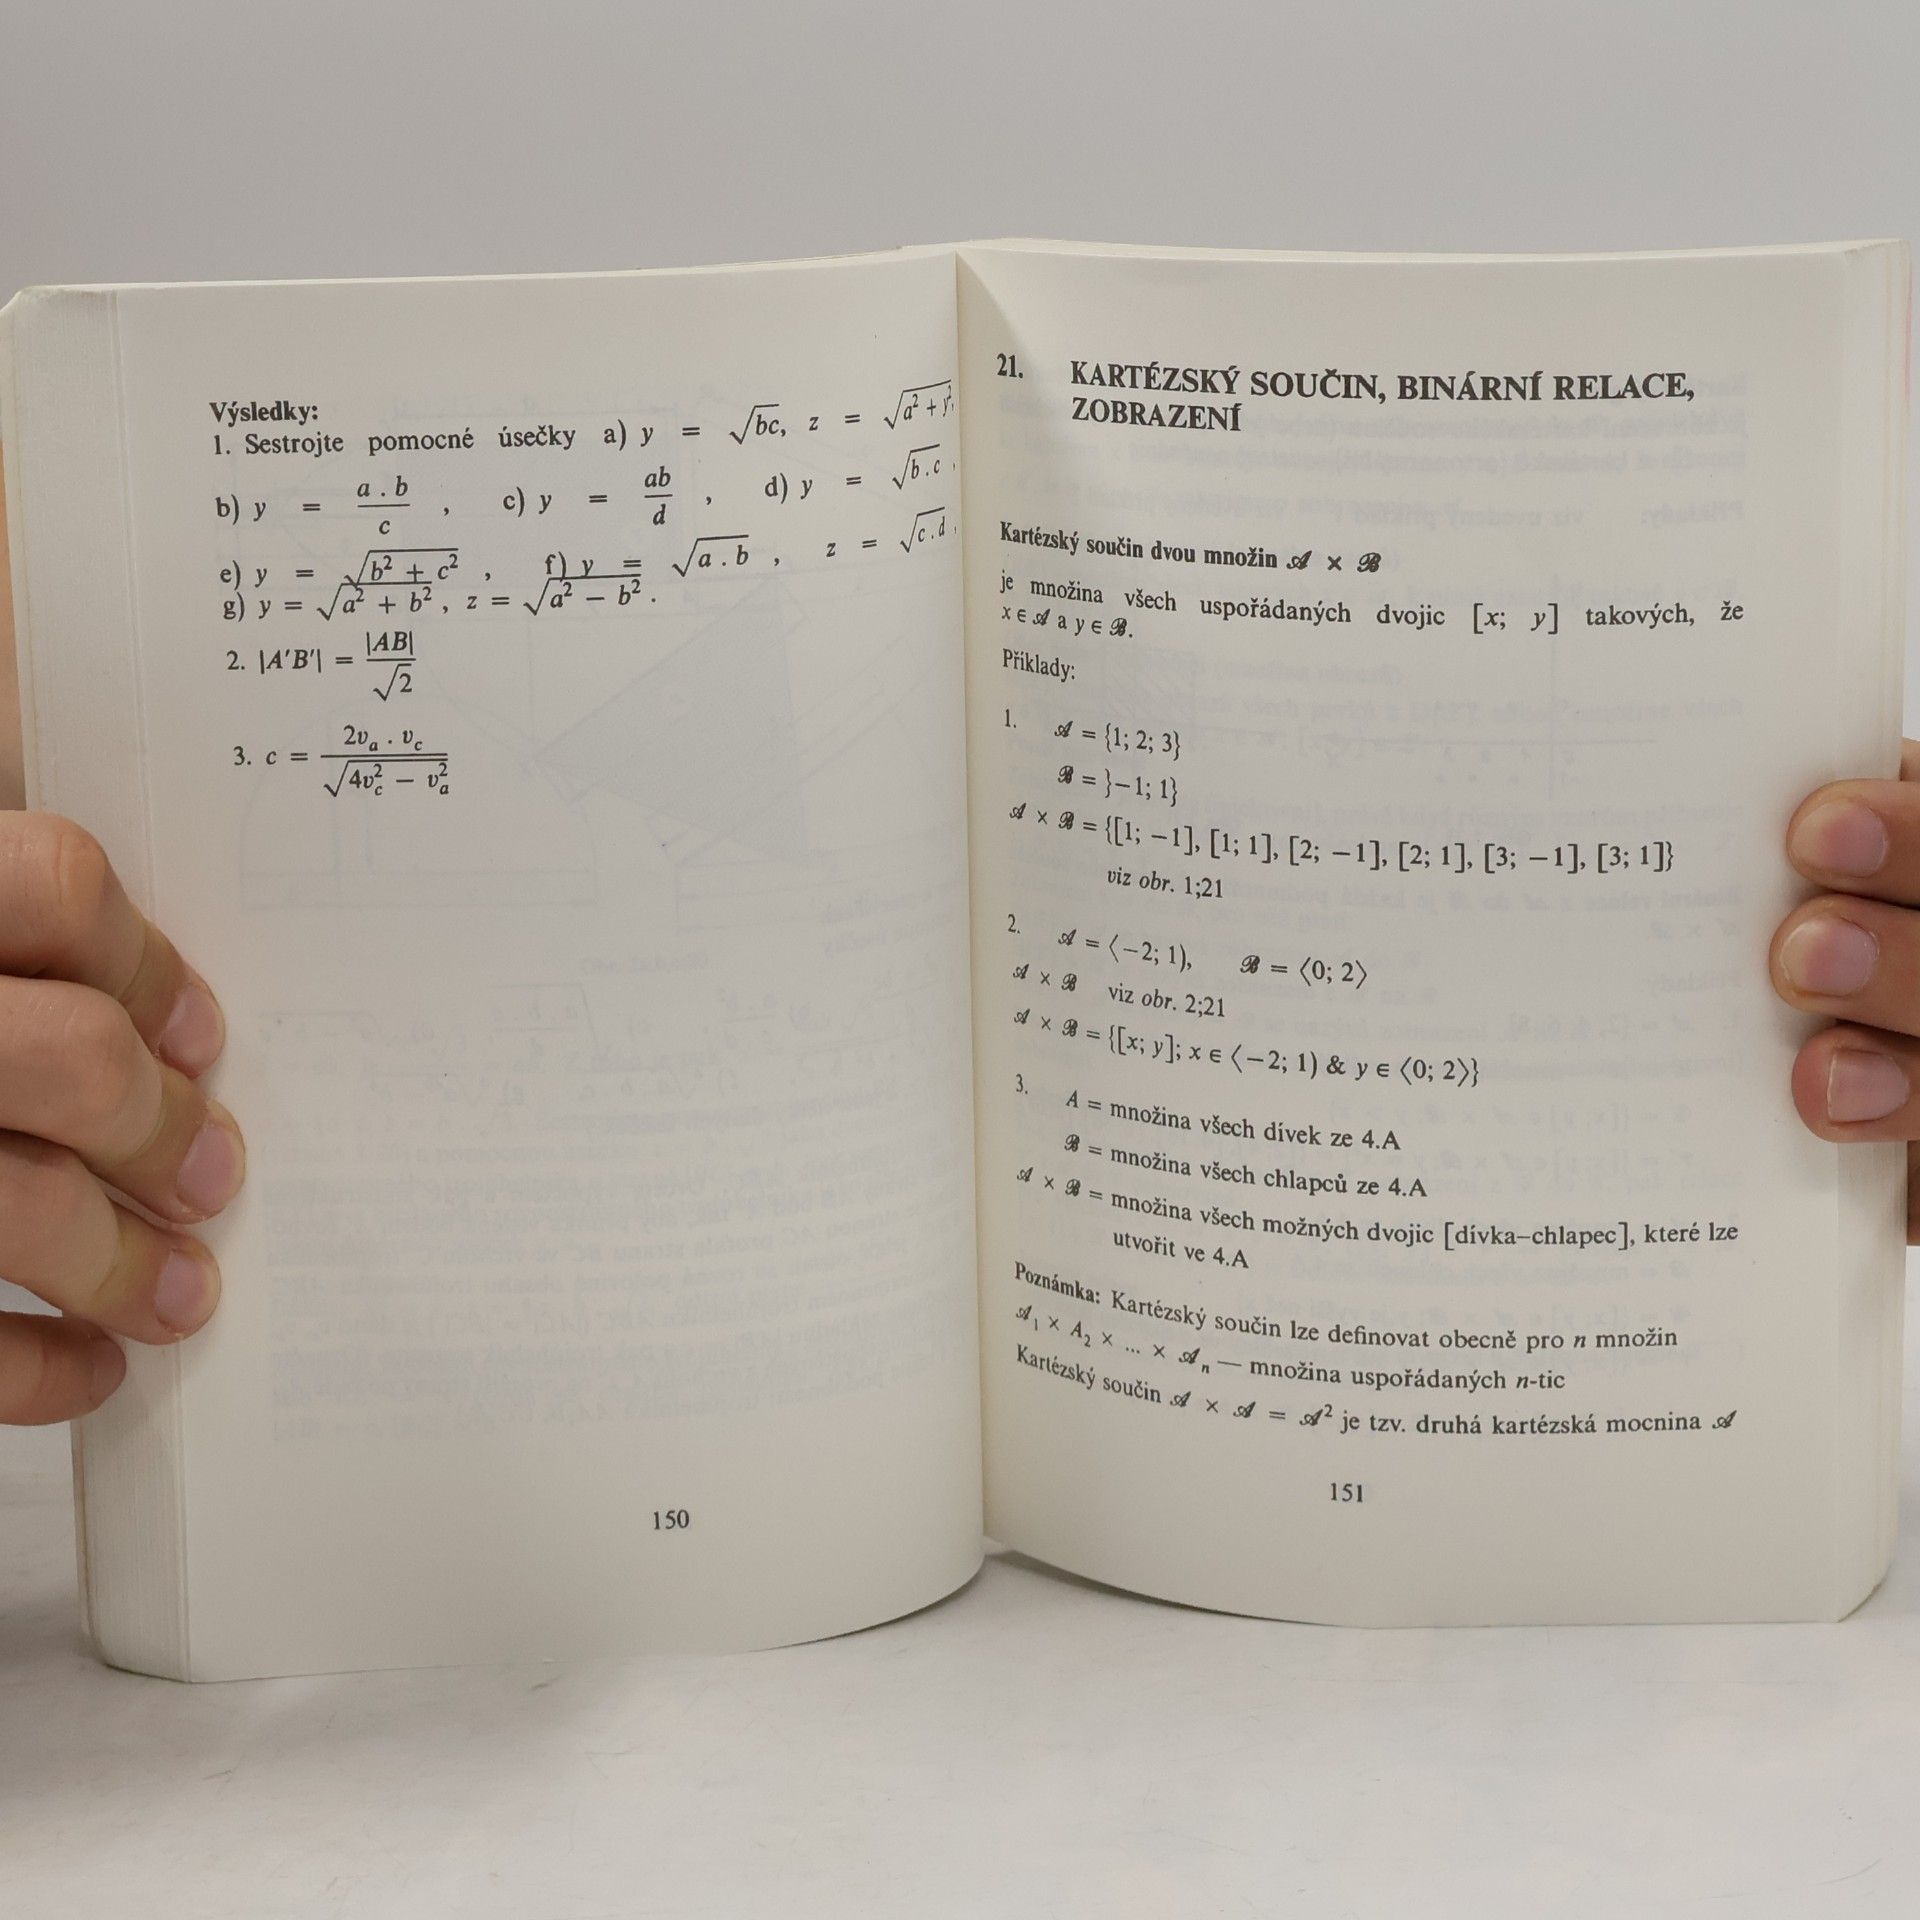 Výsledky:
1. Sestrojte pomocné úsečky a) y = √bc, z = √a² + y²,
b) y = a . b / c , c) y = ab / d , d) y = √b . c ,
e) y = √b² + c² , f) y = √a . b , z = √c . d ,
g) y = √a² + b² , z = √a² − b² .
2. |A′B′| = |AB| / √2
3. c = 2vₐ . v_c / √4v_c² − vₐ²
150
21. KARTÉZSKÝ SOUČIN, BINÁRNÍ RELACE,
ZOBRAZENÍ
Kartézský součin dvou množin 𝒜 × ℬ
je množina všech uspořádaných dvojic [x; y] takových, že
x ∈ 𝒜 a y ∈ ℬ.
Příklady:
1. 𝒜 = {1; 2; 3}
ℬ = }−1; 1}
𝒜 × ℬ = {[1; −1], [1; 1], [2; −1], [2; 1], [3; −1], [3; 1]}
viz obr. 1;21
2. 𝒜 = ⟨−2; 1), ℬ = ⟨0; 2⟩
𝒜 × ℬ viz obr. 2;21
𝒜 × ℬ = {[x; y]; x ∈ ⟨−2; 1) & y ∈ ⟨0; 2⟩}
3. A = množina všech dívek ze 4.A
ℬ = množina všech chlapců ze 4.A
𝒜 × ℬ = množina všech možných dvojic [dívka–chlapec], které lze
utvořit ve 4.A
Poznámka: Kartézský součin lze definovat obecně pro n množin
𝒜₁ × A₂ × ... × 𝒜ₙ — množina uspořádaných n-tic
Kartézský součin 𝒜 × 𝒜 = 𝒜² je tzv. druhá kartézská mocnina 𝒜
151